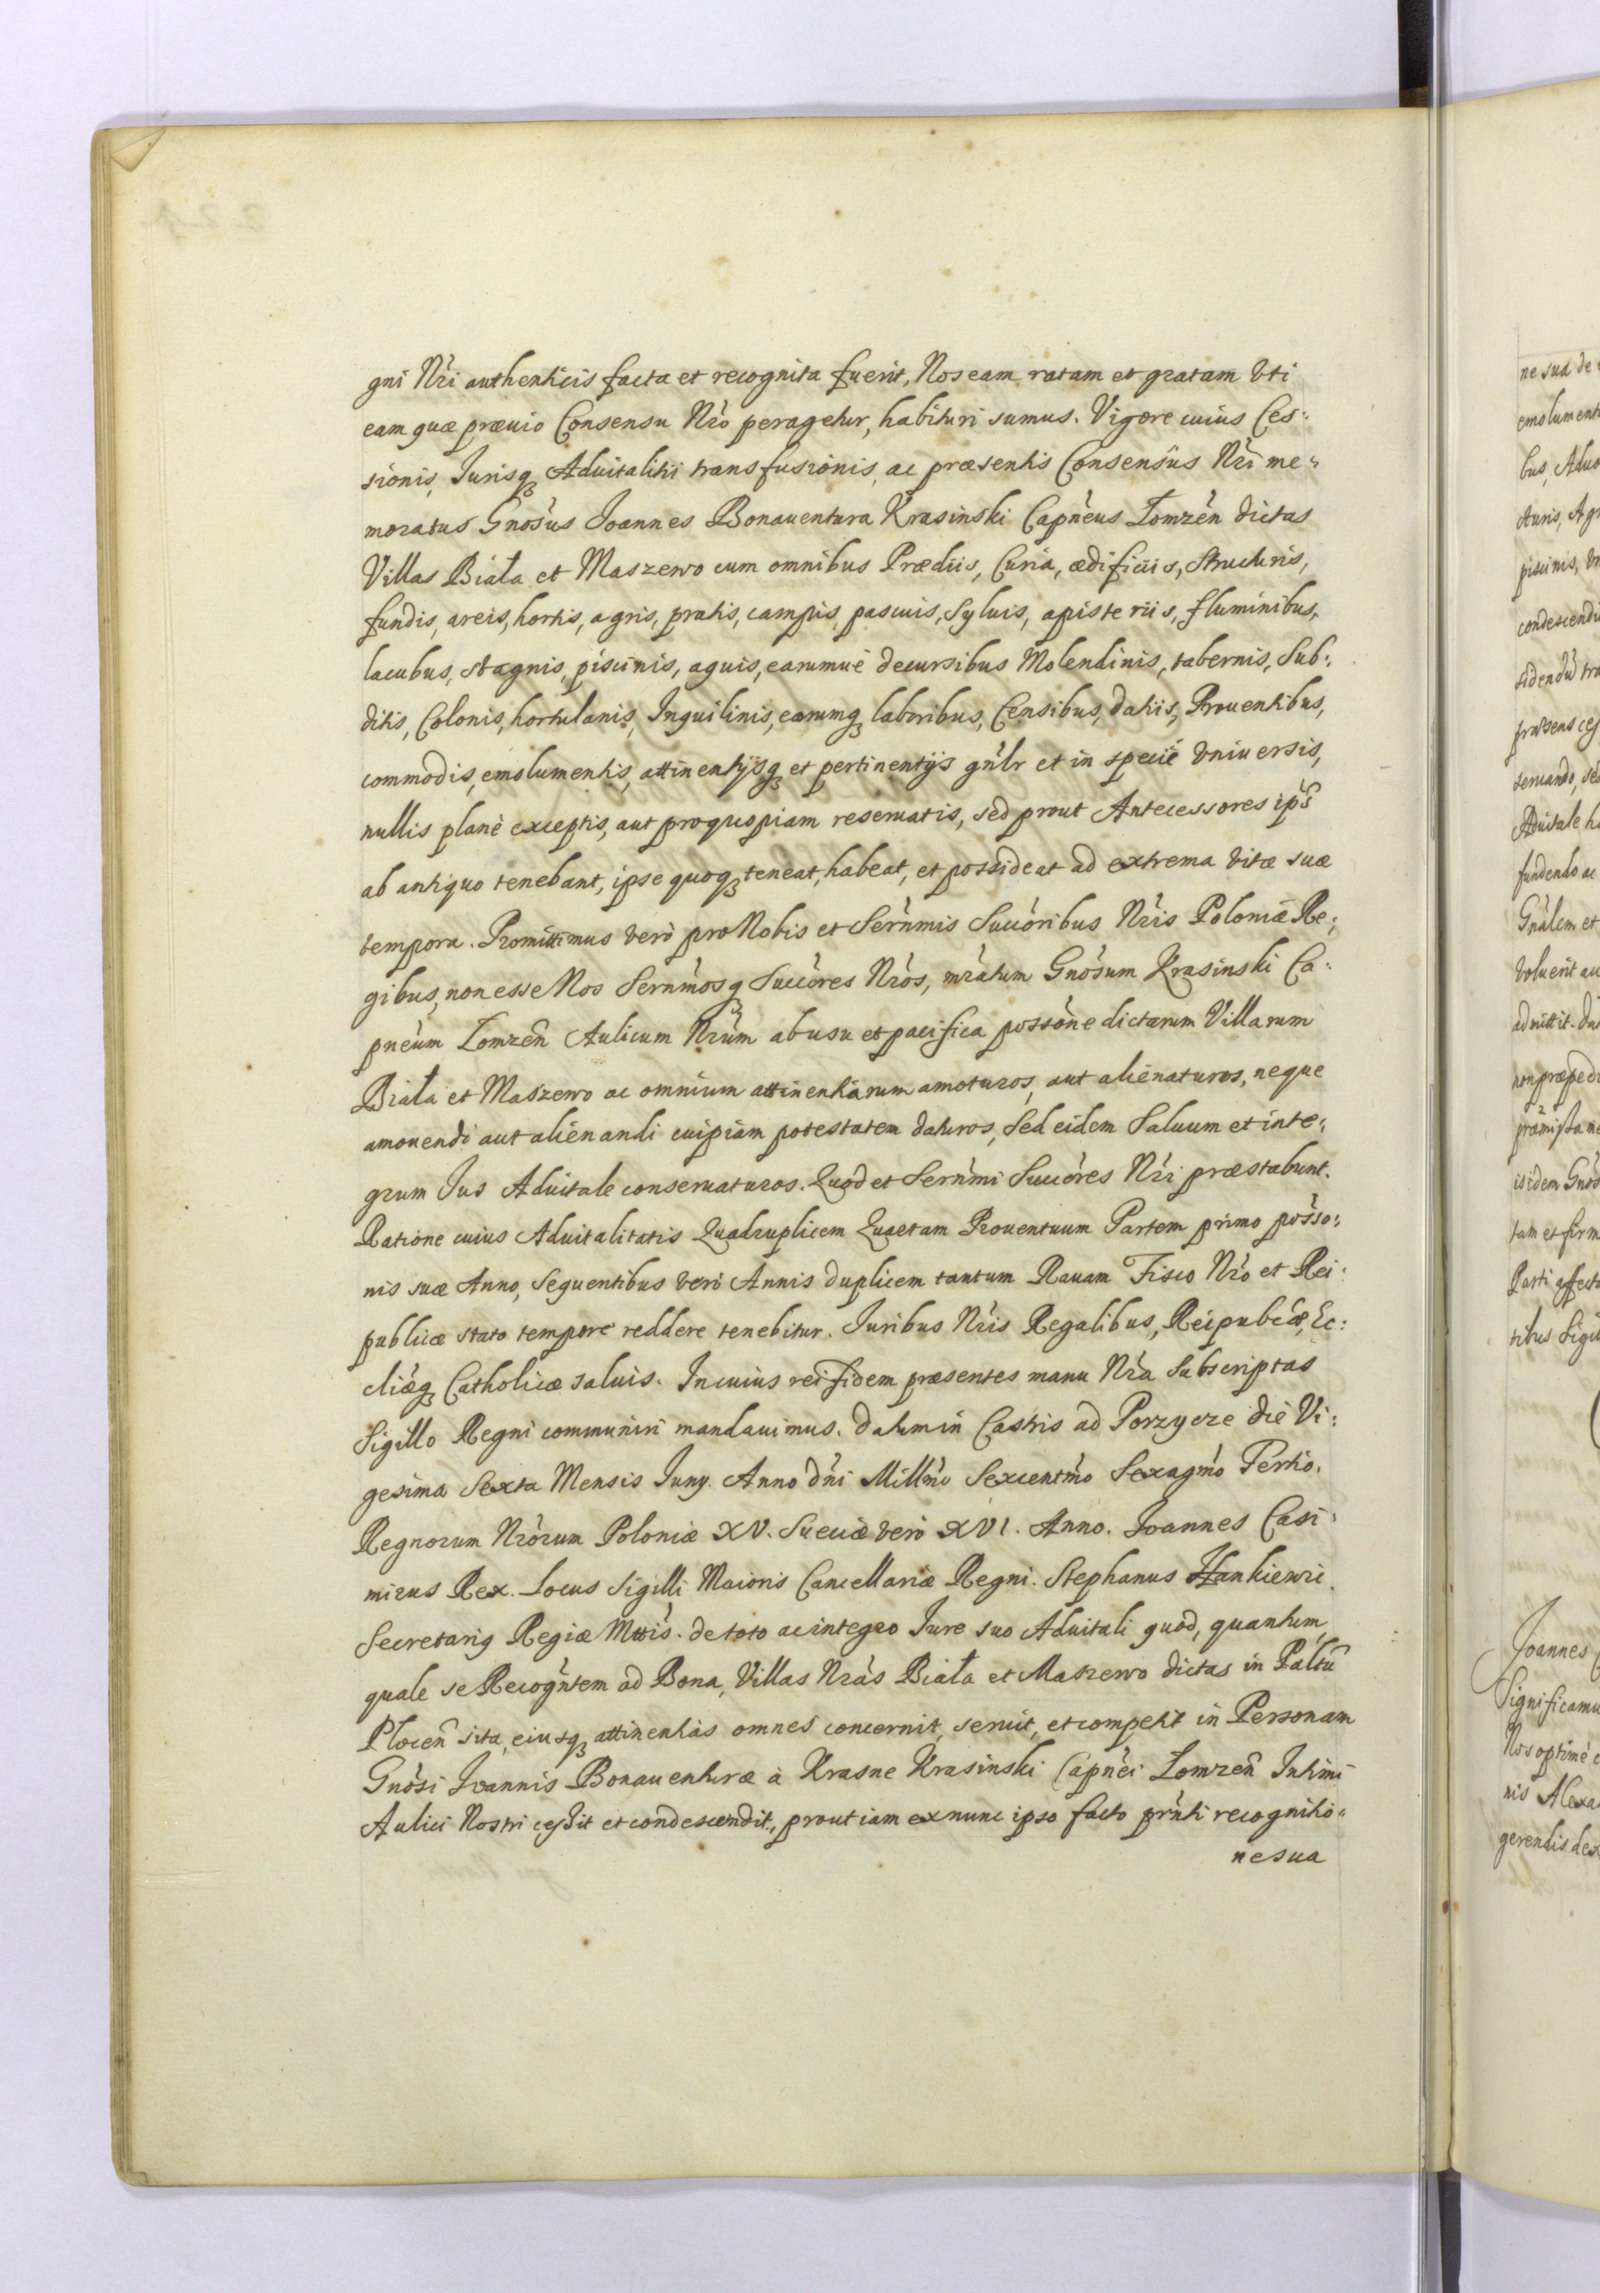 gni Nri authenticis facta et recognita fuerit, Nos eam ratam et gratam Vti
eam quæ præuio Consensu Nro peragetur, habituri sumus. Vigore cuius Ces:
sionis, Jurisq Aduitalitii transfusionis, ac præsentis Consensûs Nri me:
moratus Gnosus Joannes Bonauentura Krasinski Capneus Łomzen dictas
Villas Biała et Maszewo cum omnibus Prædiis, Curia, ædificiis, structuris,
fundis, areis, hortis, agris, pratis, campis, pascuis, syluis, apisteriis, fluminibus,
lacubus, stagnis, piscinis, aquis, earumuè decursibus Molendinis, tabernis, Sub:
ditis, Colonis, hortulanis, Inquilinis, eorumq laboribus, Censibus, datiis, Prouentibus,
commodis, emolumentis, attinentijsq et pertinentijs gnlr et in specie vniuersis,
nullis planè exceptis, aut pro quopiam reseruatis, sed prout Antecessores ips
ab antiquo tenebant, ipse quoq teneat, habeat, et possideat ad extrema vitæ suæ
tempora. Promittimus verò pro Nobis et Sernmis Succoribus Nris Poloniæ Re:
gibus, non esse Nos Sernmosq Succores Nros, mratum Gnosum Krasinski Ca:
pneum Łomzen Aulicum Nrum ab usu et pacifica possone dictarum Villarum
Biała et Maszewo ac omnium attinentiarum amoturos, aut alienaturos, neque
amouendi aut alienandi cuipiam potestatem daturos, sed eidem Saluum et inte:
grum Jus Aduitale conseruaturos. Quod et Sernmi Succores Nri præstabunt.
Ratione cuius Aduitalitatis Quadruplicem Quartam Prouentuum Partem primo posso:
nis suæ Anno, sequentibus verò Annis duplicem tantum Rauam Fisco Nro et Rei:
publicæ stato tempore reddere tenebitur. Juribus Nris Regalibus, Reipubcæ, Ec:
cliæq Catholicæ saluis. In cuius rei fidem præsentes manu Nra Subscriptas
Sigillo Regni communiri mandauimus. Datum in Castris ad Porzycze die Vi:
gesima Sexta Mensis Juny. Anno Dni Millmo Sexcentmo Sexagmo Tertio.
Regnorum Nrorum Poloniæ XV. Sueciæ verò XVI. Anno. Joannes Casi:
mirus Rex. Locus Sigilli Maioris Cancellariæ Regni. Stephanus Hankiewic
Secretarig Regiæ Mttis. de toto ac integro Jure suo Aduitali quod, quantum,
quale se Recogntem ad Bona, Villas Nras Biała et Maszewo dictas in Paltu
Plocen sita, eiusq attinentias omnes concernit, seruit, et competit in Personam
Gnosi Joannis Bonauenturæ à Krasne Krasinski Capnei Łomzen Intimi
Aulici Nostri cessit et condescendit, prout iam ex nunc ipso facto prnti recognitio:
ne sua